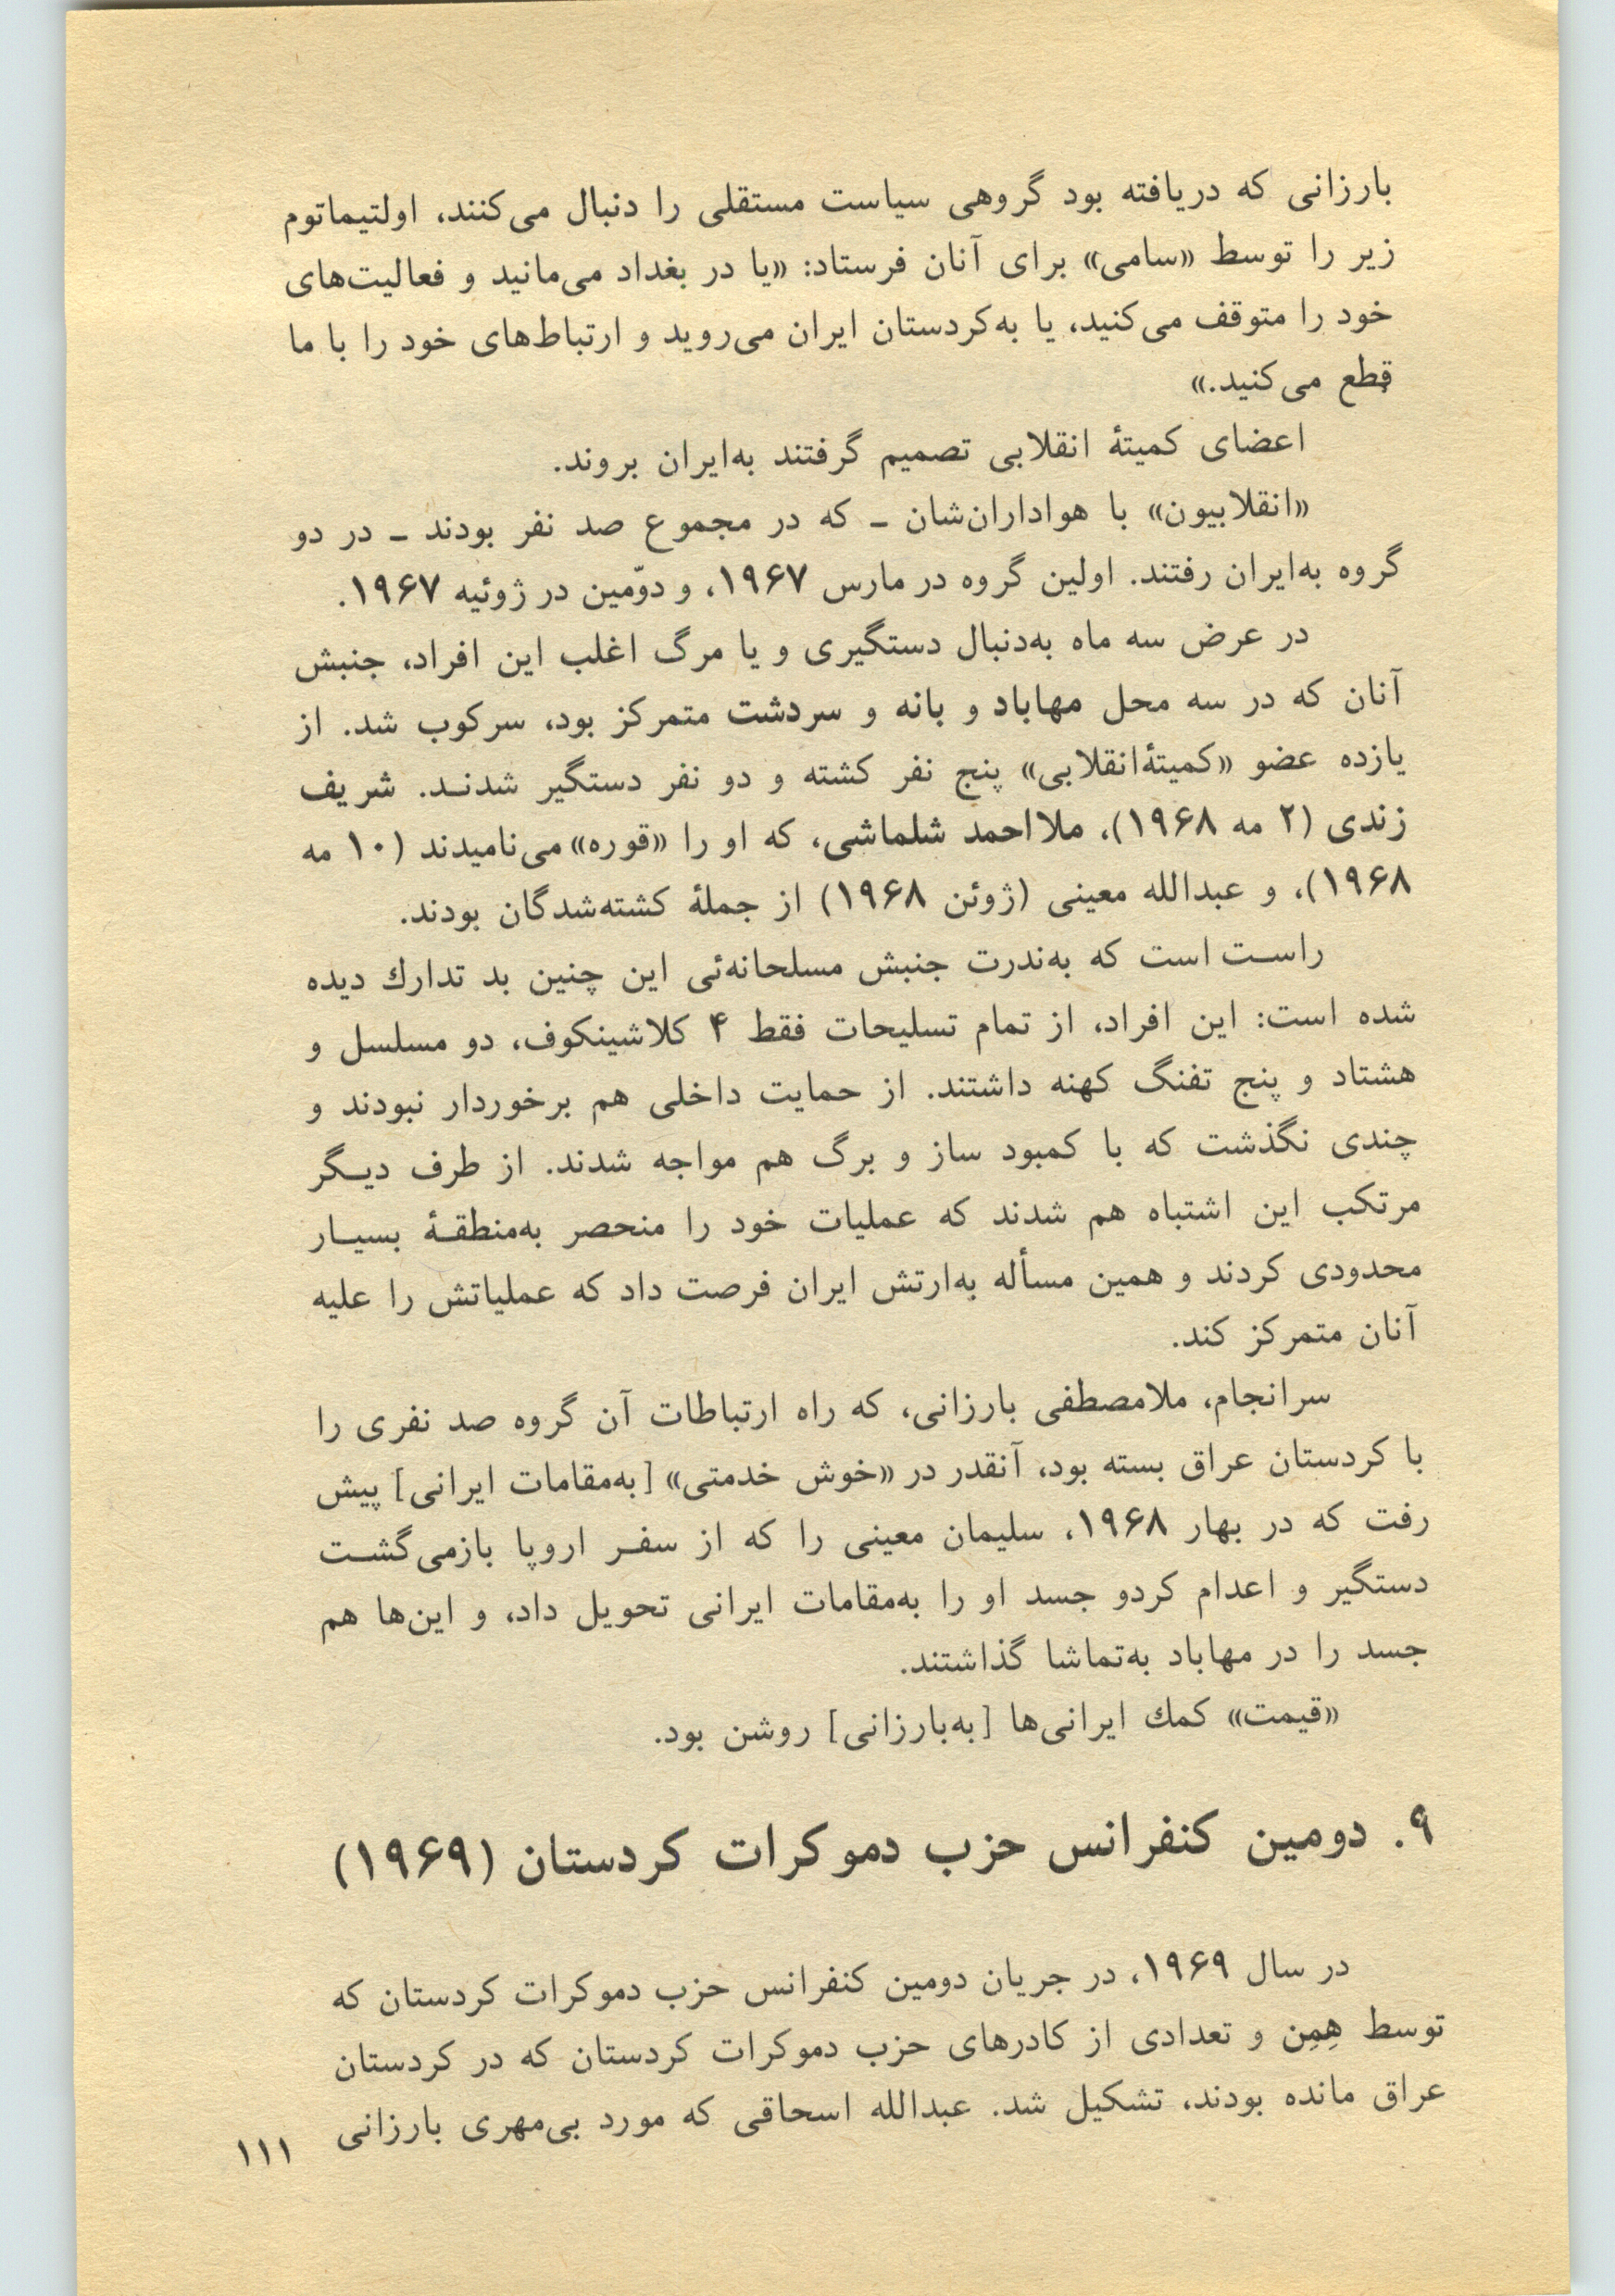 بارزانی که دریافته بود گروهی سیاست مستقلی را دنبال می‌کنند، اولتیماتوم
زیر را توسط «سامی» برای آنان فرستاد: «یا در بغداد می‌مانید و فعالیت‌های
خود را متوقف می‌کنید، یا به‌کردستان ایران می‌روید و ارتباط‌های خود را با ما
قطع می‌کنید.»
اعضای کمیتهٔ انقلابی تصمیم گرفتند به‌ایران بروند.
«انقلابیون» با هواداران‌شان ـ که در مجموع صد نفر بودند ـ در دو
گروه به‌ایران رفتند. اولین گروه در مارس ۱۹۶۷، و دوّمین در ژوئیه ۱۹۶۷.
در عرض سه ماه به‌دنبال دستگیری و یا مرگ اغلب این افراد، جنبش
آنان که در سه محل مهاباد و بانه و سردشت متمرکز بود، سرکوب شد. از
یازده عضو «کمیتهٔانقلابی» پنج نفر کشته و دو نفر دستگیر شدنـد. شریف
زندی (۲ مه ۱۹۶۸)، ملااحمد شلماشی، که او را «قوره» می‌نامیدند (۱۰ مه
۱۹۶۸)، و عبدالله معینی (ژوئن ۱۹۶۸) از جملهٔ کشته‌شدگان بودند.
راسـت است که به‌ندرت جنبش مسلحانه‌ئی این چنین بد تدارك دیده
شده است: این افراد، از تمام تسلیحات فقط ۴ کلاشینکوف، دو مسلسل و
هشتاد و پنج تفنگ کهنه داشتند. از حمایت داخلی هم برخوردار نبودند و
چندی نگذشت که با کمبود ساز و برگ هم مواجه شدند. از طرف دیـگر
مرتکب این اشتباه هم شدند که عملیات خود را منحصر به‌منطقـهٔ بسیـار
محدودی کردند و همین مسأله به‌ارتش ایران فرصت داد که عملیاتش را علیه
آنان متمرکز کند.
سرانجام، ملامصطفی بارزانی، که راه ارتباطات آن گروه صد نفری را
با کردستان عراق بسته بود، آنقدر در «خوش خدمتی» [به‌مقامات ایرانی] پیش
رفت که در بهار ۱۹۶۸، سلیمان معینی را که از سفـر اروپا بازمی‌گشـت
دستگیر و اعدام کردو جسد او را به‌مقامات ایرانی تحویل داد، و این‌ها هم
جسد را در مهاباد به‌تماشا گذاشتند.
«قیمت» کمك ایرانی‌ها [به‌بارزانی] روشن بود.
۹. دومین کنفرانس حزب دموکرات کردستان (۱۹۶۹)
در سال ۱۹۶۹، در جریان دومین کنفرانس حزب دموکرات کردستان که
توسط هِمِن و تعدادی از کادرهای حزب دموکرات کردستان که در کردستان
عراق مانده بودند، تشکیل شد. عبدالله اسحاقی که مورد بی‌مهری بارزانی
۱۱۱